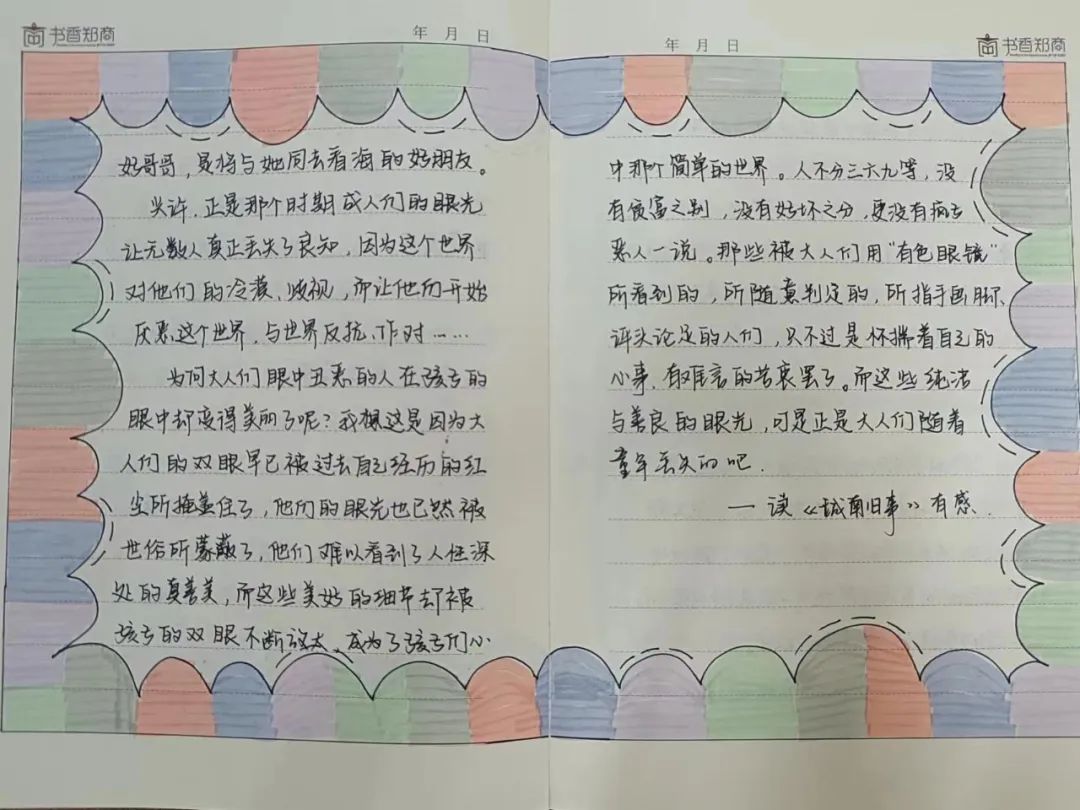 书香郑商
年 月 日
好哥哥，是将与她同去看海的好朋友。
兴许，正是那个时期成人们的眼光
让无数人真正丢失了良知，因为这个世界
对他们的冷漠、歧视，而让他们开始
厌恶这个世界，与世界反抗、作对……
为何大人们眼中丑恶的人在孩子的
眼中却变得美丽了呢？我想这是因为大
人们的双眼早已被过去自己经历的红
尘所掩盖住了，他们的眼光也已然被
世俗所蒙蔽了，他们难以看到了人性深
处的真善美，而这些美好的细节却被
孩子的双眼不断放大，成为了孩子们心
年 月 日
书香郑商
中那个简单的世界。人不分三六九等，没
有贫富之别，没有好坏之分，更没有疯子
恶人一说。那些被大人们用“有色眼镜”
所看到的，所随意判定的，所指手画脚、
评头论足的人们，只不过是怀揣着自己的
心事，有难言的苦衷罢了。而这些纯洁
与善良的眼光，可是正是大人们随着
童年丢失的吧.
— 读《城南旧事》有感.